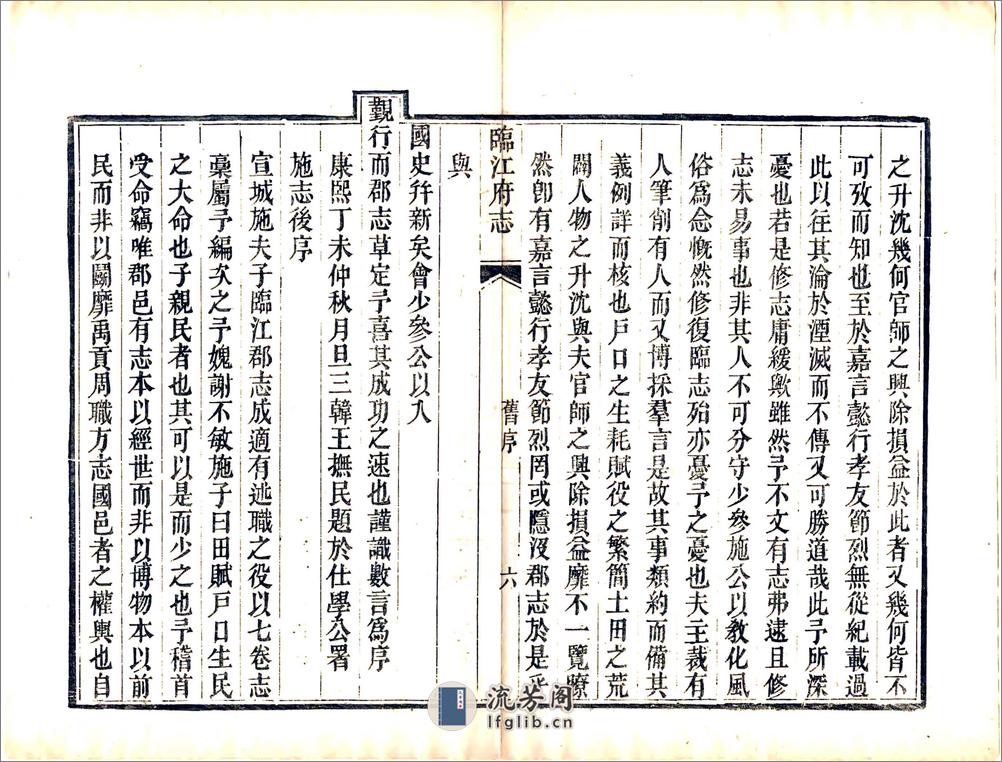 之升沈幾何官師之興除損益於此者又幾何皆不
可攷而知也至於嘉言懿行孝友節烈無從紀載過
此以往其淪於湮滅而不傳又可勝道哉此予所深
憂也若是修志庸緩歟雖然予不文有志弗逮且修
志未易事也非其人不可分守少參施公以敎化風
俗爲念慨然修復臨志殆亦憂予之憂也夫主裁有
人筆削有人而又博採羣言是故其事類約而備其
義例詳而核也戸口之生耗賦役之繁簡土田之荒
闢人物之升沈與夫官師之興除損益靡不一覽瞭
然卽有嘉言懿行孝友節烈罔或隱沒郡志於是乎
臨江府志
舊序
六
與
國史幷新矣會少參公以入
覲行而郡志草定予喜其成功之速也謹識數言爲序
康熙丁未仲秋月旦三韓王撫民題於仕學公署
施志後序
宣城施夫子臨江郡志成適有述職之役以七卷志
稾屬予編次之予媿謝不敏施子曰田賦戸口生民
之大命也子親民者也其可以是而少之也予稽首
受命竊唯郡邑有志本以經世而非以博物本以前
民而非以鬭靡禹貢周職方志國邑者之權輿也自
流芳阁
lfglib.cn